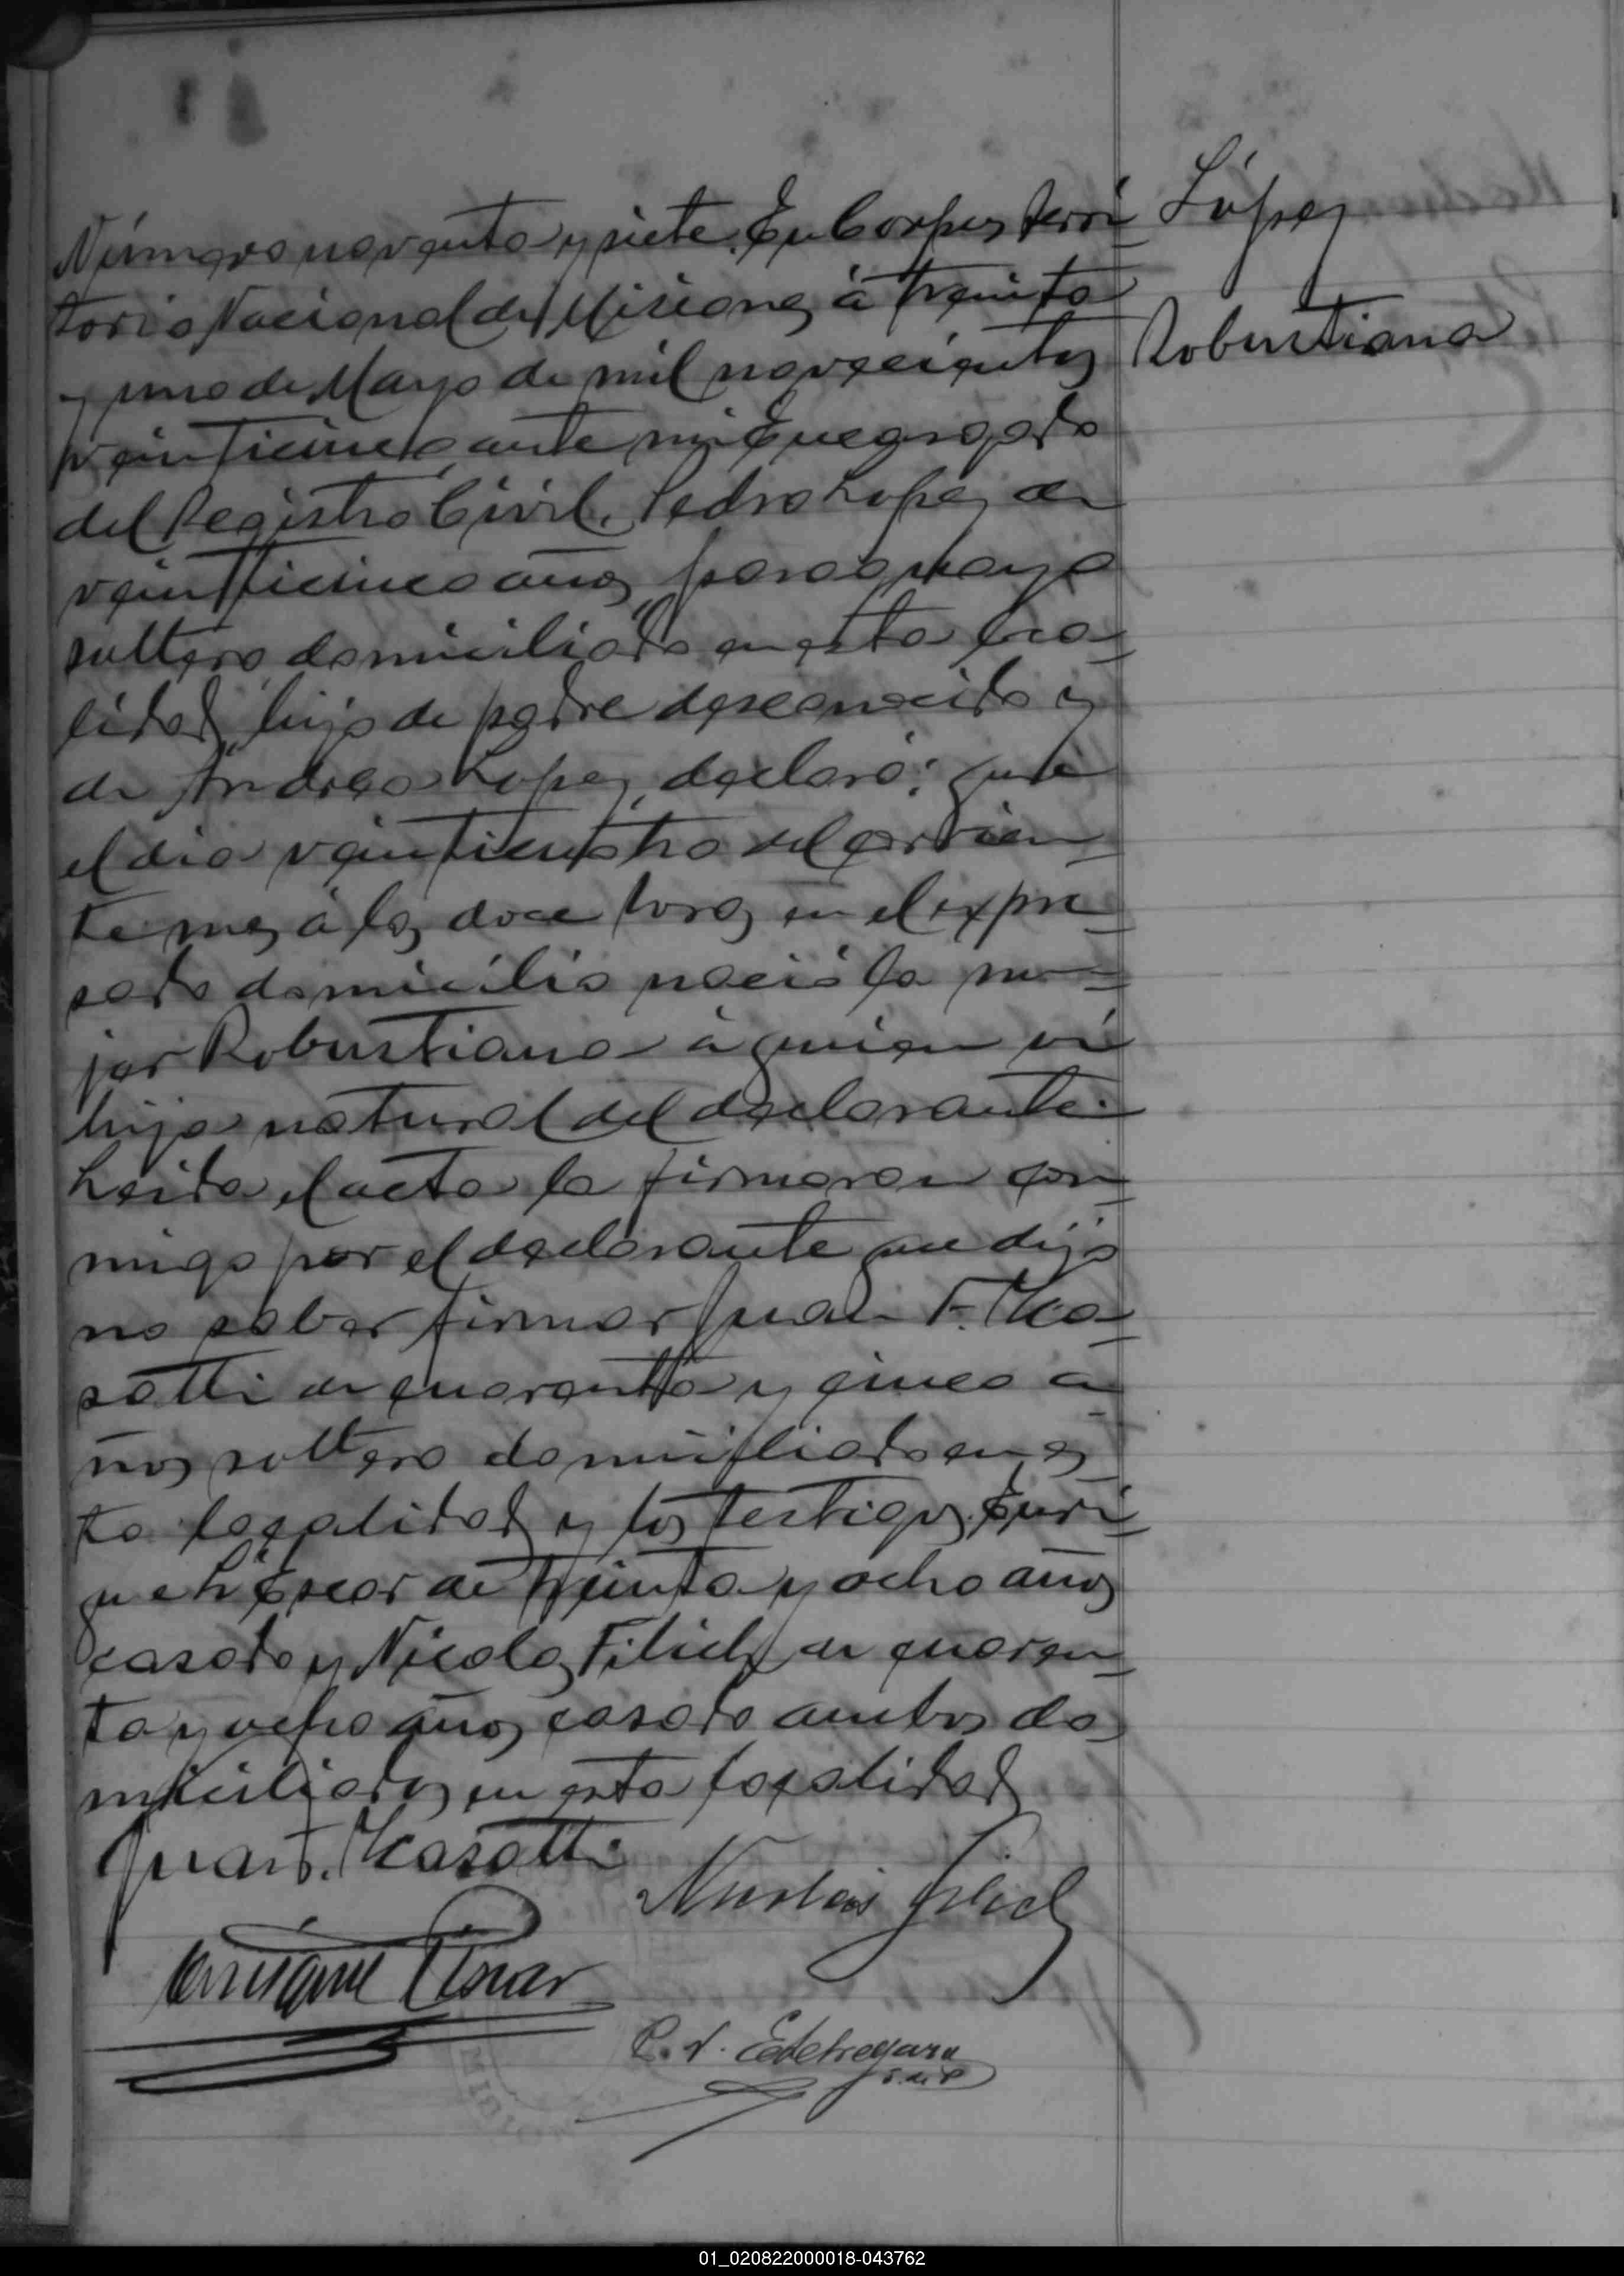 López
Robustiana
Número noventa y siete. En Corpus Terri-
torio Nacional de Misiones, á treinta
y uno de Mayo de mil novecientos
veinticinco, ante mi Encargado
del Registro Civil, Pedro Lopez, de
veinticinco años, paraguayo
soltero, domiciliado en esta loca-
lidad, hijo de padre desconocido y
de Andrea Lopez, declaró: que
el dia veinticuatro del corrien-
te mes á las doce horas en el expre-
sado domicilio nació la mu-
jer Robustiana á quien ví
hija natural del declarante.
Leida el acta la firmaron con-
migo por el declarante que dijo
no saber firmar Juan F.
de cuarenta y cinco a-
ños, soltero domiciliado en es-
ta localidad y los testigos. Enri-
que L. Escar de treinta y ocho años
casado y Nicolas Filich, de cuaren-
ta y ocho años, casado ambos do-
miciliados en esta localidad
Juan F.
Nicolás Filich
Enrique Escar
01_020822000018-043762